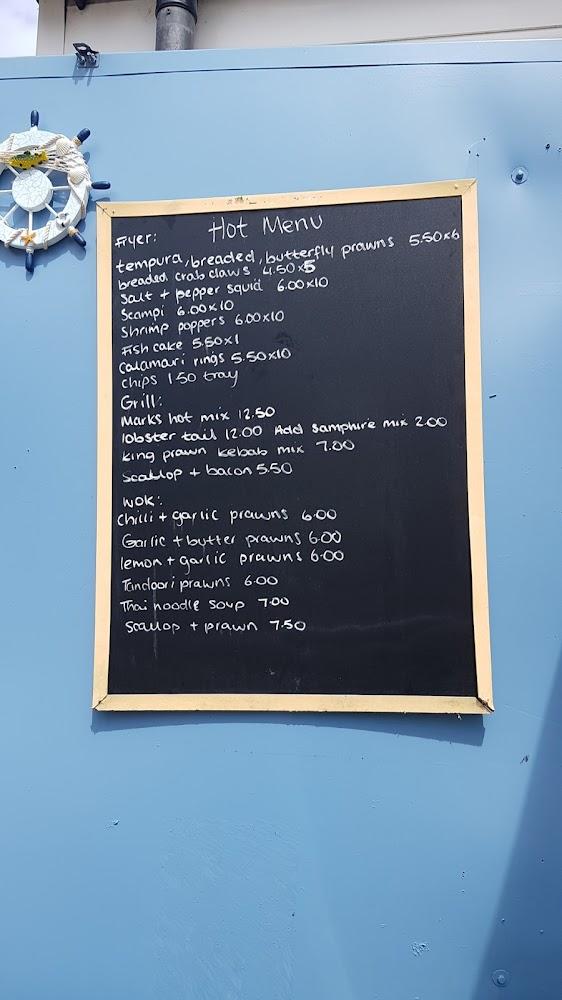 Hot Menu
Fryer:
tempura, breaded, butterfly prawns 5.50x6
breaded crab claws 4.50x5
Salt + pepper squid 6.00x10
Scampi 6.00x10
Shrimp poppers 6.00x10
Fish cake 5.50x1
Calamari rings 5.50x10
chips 1.50 tray
Grill:
Marks hot mix 12.50
lobster tail 12.00 Add Samphire mix 2.00
king prawn kebab mix 7.00
Scallop + bacon 5.50
WOK:
Chilli + garlic prawns 6.00
Garlic + butter prawns 6.00
lemon + garlic prawns 6.00
Tandoori prawns 6.00
Thai noodle soup 7.00
Scallop + prawn 7.50